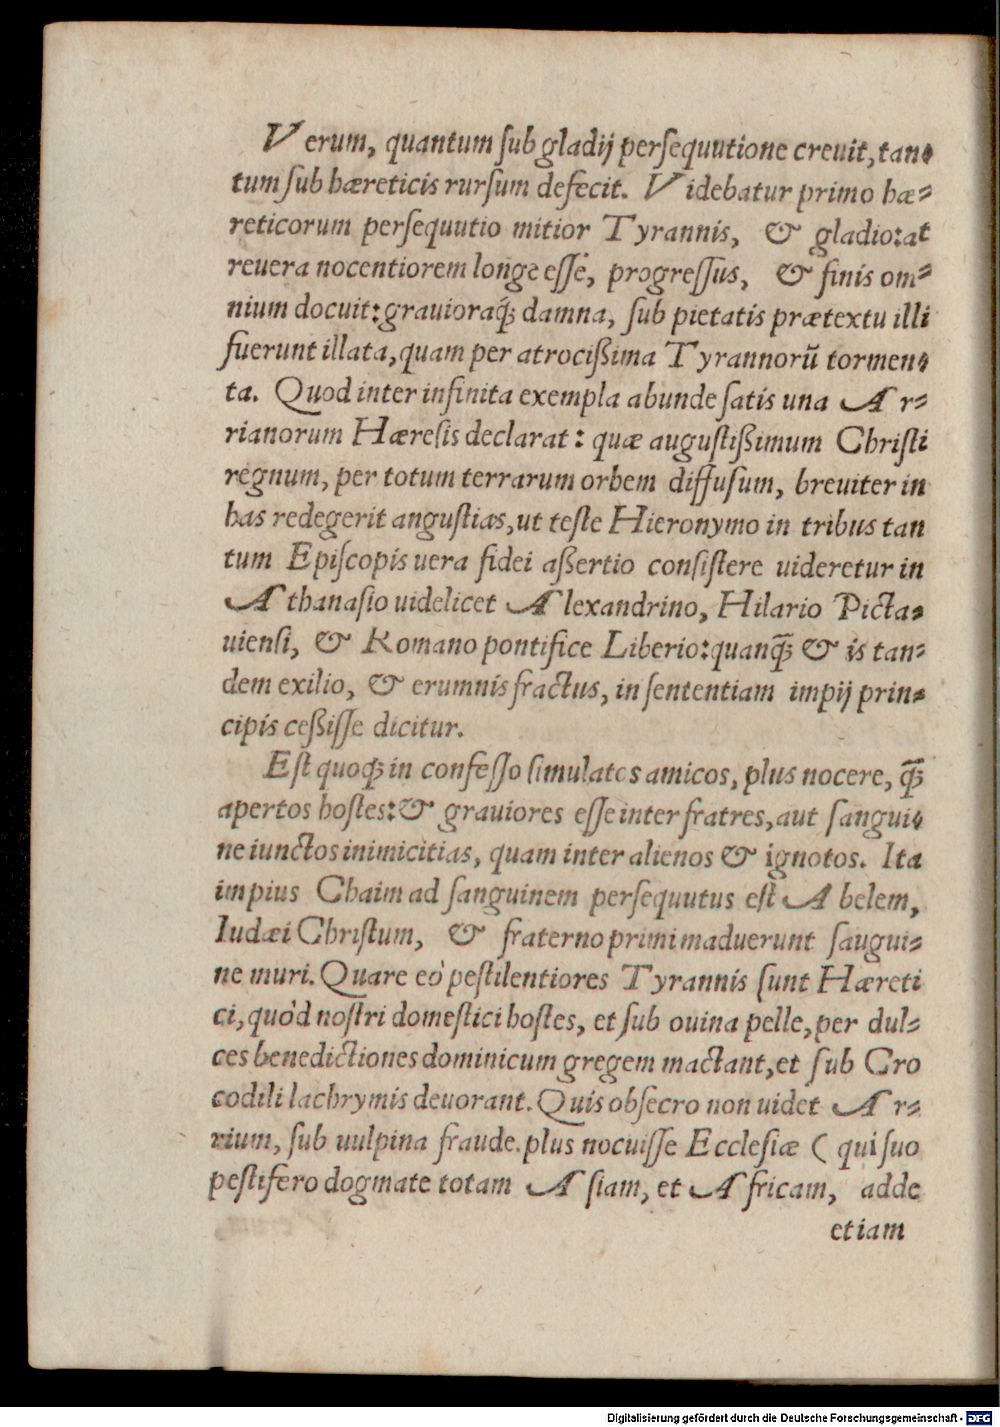 Verum, quantum ſub gladij perſequutione creuit, tan-
tum ſub hæreticis rurſum defecit. Videbatur primo hæ-
reticorum perſequutio mitior Tyrannis, & gladio: at
reuera nocentiorem longe eſſe, progreſſus, & finis om-
nium docuit: grauioraq́; damna, ſub pietatis prætextu illi
fuerunt illata, quam per atrocißima Tyrannorũ tormen-
ta. Quod inter infinita exempla abunde ſatis una Ar-
rianorum Hæreſis declarat: quæ auguſtißimum Chriſti
regnum, per totum terrarum orbem diffuſum, breuiter in
has redegerit anguſtias, ut teſte Hieronymo in tribus tan
tum Epiſcopis uera fidei aßertio conſiſtere uideretur in
Athanaſio uidelicet Alexandrino, Hilario Picta-
uienſi, & Romano pontifice Liberio: quanq̃; & is tan-
dem exilio, & erumnis fractus, in ſententiam impij prin-
cipis ceßiſſe dicitur.
Eſt quoq; in confeſſo ſimulatos amicos, plus nocere, q̃;
apertos hoſtes: & grauiores eſſe inter fratres, aut ſangui-
ne iunctos inimicitias, quam inter alienos & ignotos. Ita
impius Chaim ad ſanguinem perſequutus eſt Abelem,
Iudæi Chriſtum, & fraterno primi maduerunt ſaugui-
ne muri. Quare eò peſtilentiores Tyrannis ſunt Hæreti
ci, quòd noſtri domeſtici hoſtes, et ſub ouina pelle, per dul-
ces benedictiones dominicum gregem mactant, et ſub Cro
codili lachrymis deuorant. Quis obſecro non uidet Ar-
rium, ſub uulpina fraude. plus nocuiſſe Eccleſiæ ( qui ſuo
peſtifero dogmate totam Aſiam, et Africam, adde
etiam
Digitalisierung gefördert durch die Deutsche Forschungsgemeinschaft - DFG